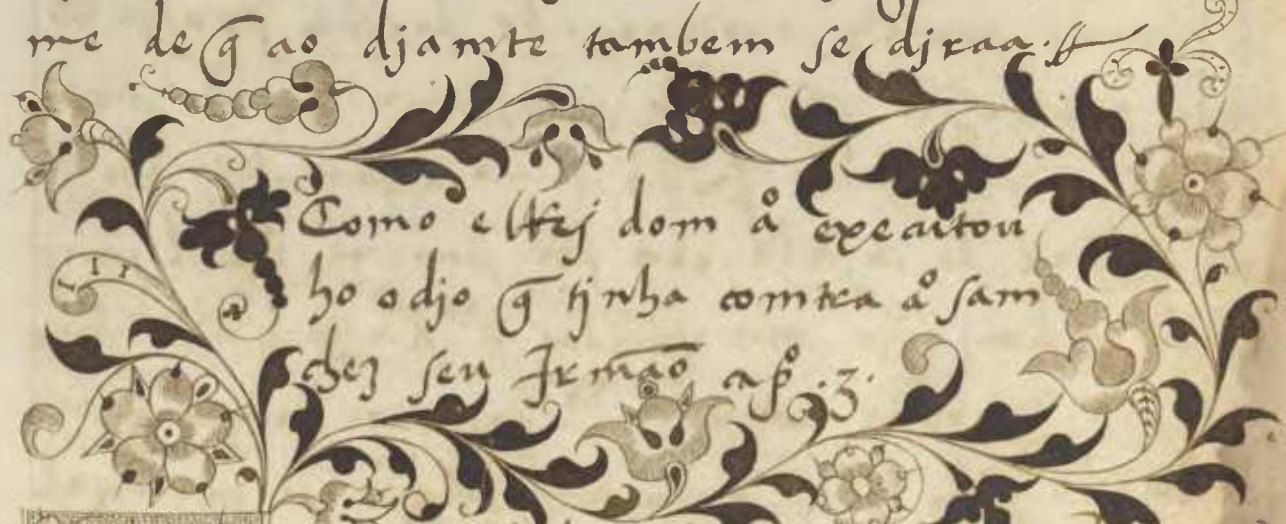 me de q̃ ao djamte tambem se djraa
Como elRej dom aº executou
ho odjo q̃ tjnha comtra aº sam
chez seu Irmão capº .3.